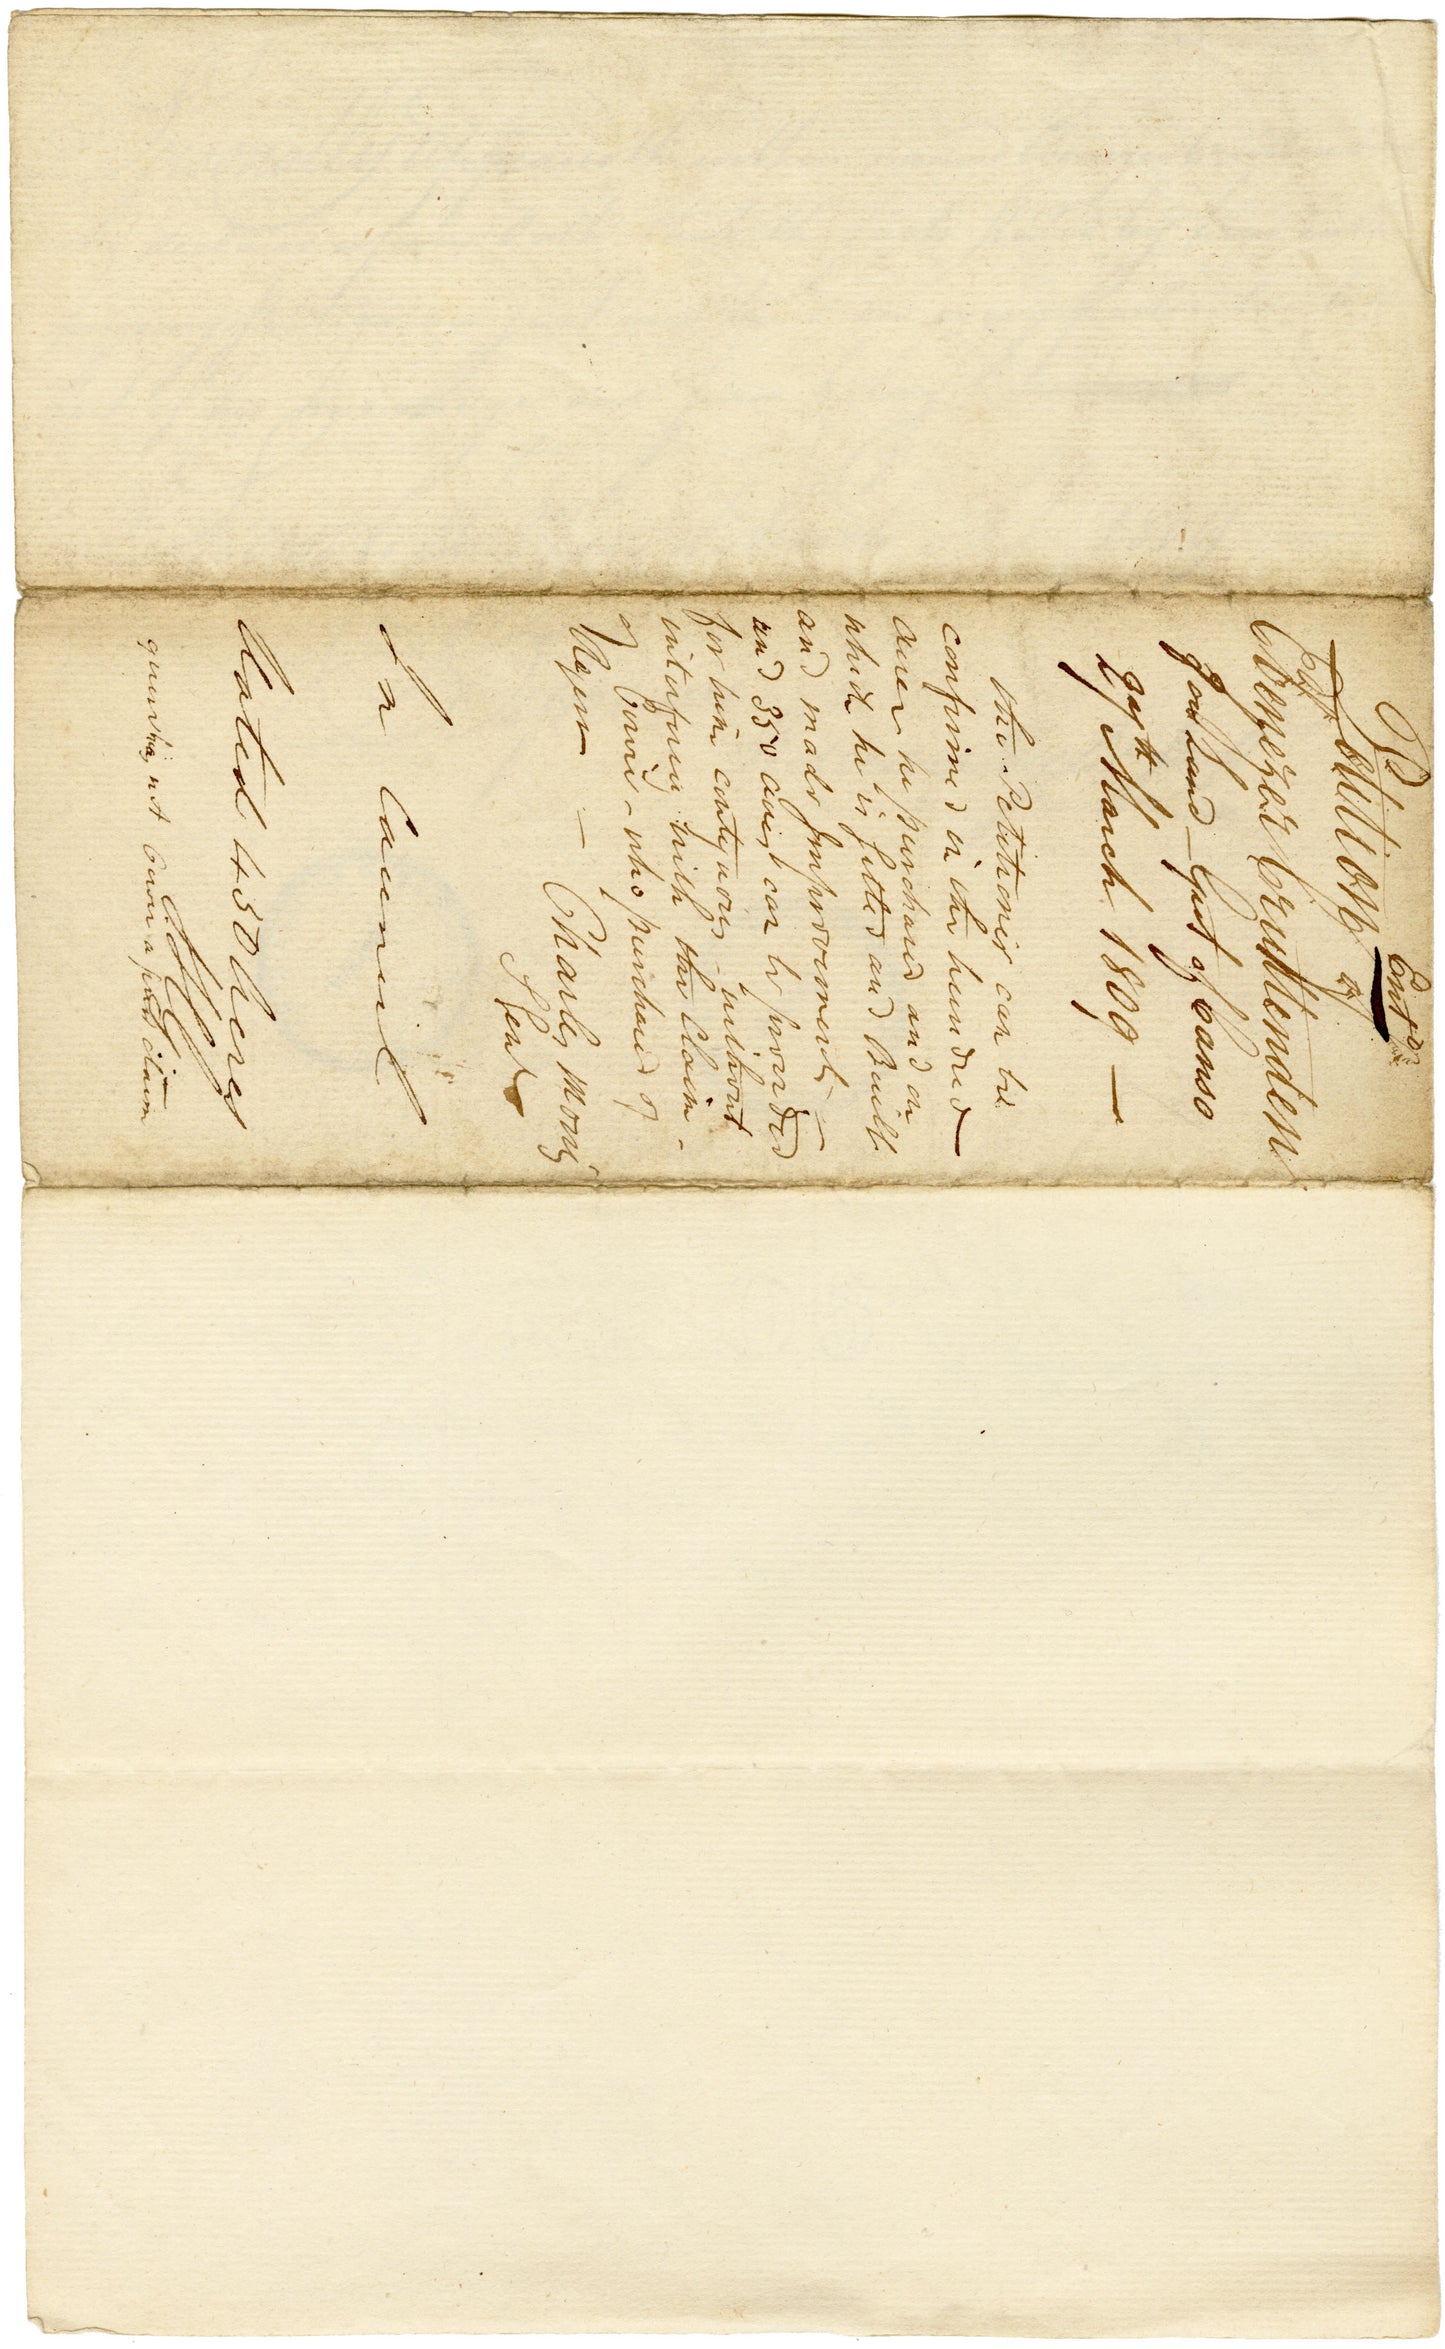 Rd Entd
Petition of
Ebenezer Cruttenden
for Land Gut of Canso
29th March 1809 —
The Petitioner can be
confirmed in the hundred
acres he purchased and on
which he is settled and Built
and made Improvements —
and 350 acres can be provided
for him contiguous without
interfering with the Claim
of who purchased of
—
Charles Morris
S Genl
In Council
450 Acres
not a claim